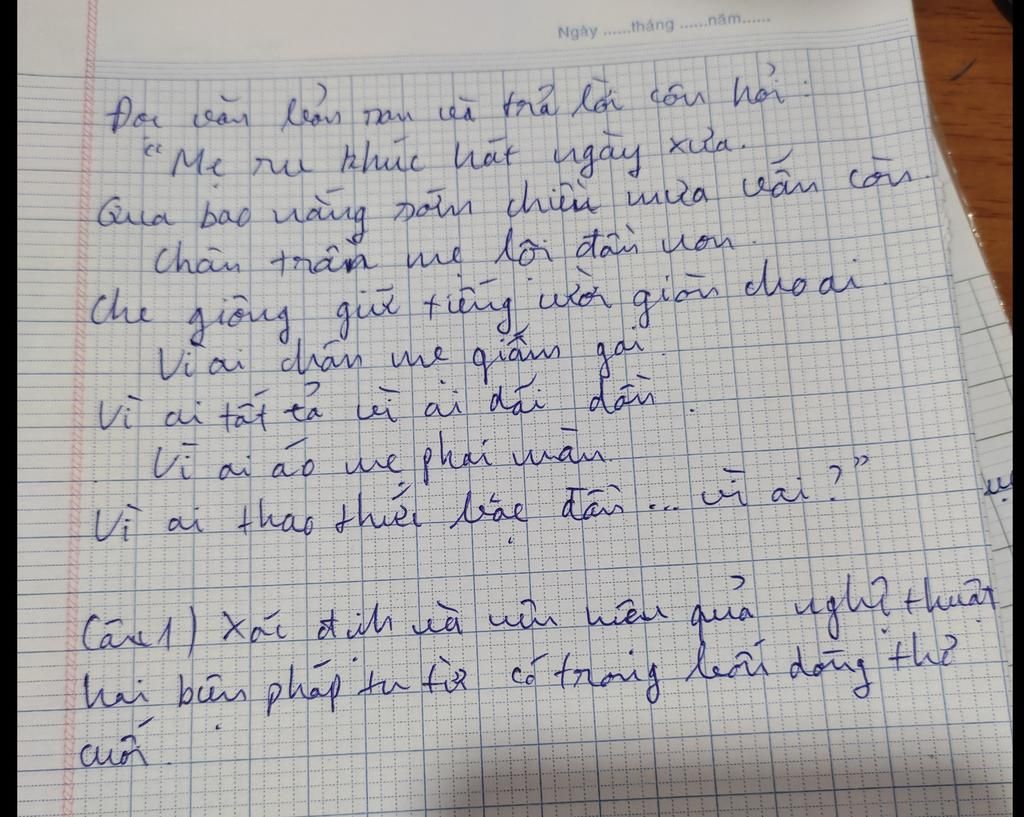 Ngày ......tháng ......năm......
Đọc văn bản sau và trả lời câu hỏi:
"Mẹ ru khúc hát ngày xưa.
Qua bao nắng sớm chiều mưa vẫn còn.
Chân trần mẹ lội đầu non.
Che giông giữ tiếng cười giòn cho ai.
Vì ai chân mẹ giẫm gai.
Vì ai tất tả vì ai dãi dầu.
Vì ai áo mẹ phai màu.
Vì ai thao thiết bạc đầu... vì ai?"
Câu 1) Xác định và nêu hiệu quả nghệ thuật
hai biện pháp tu từ có trong bốn dòng thơ
cuối.